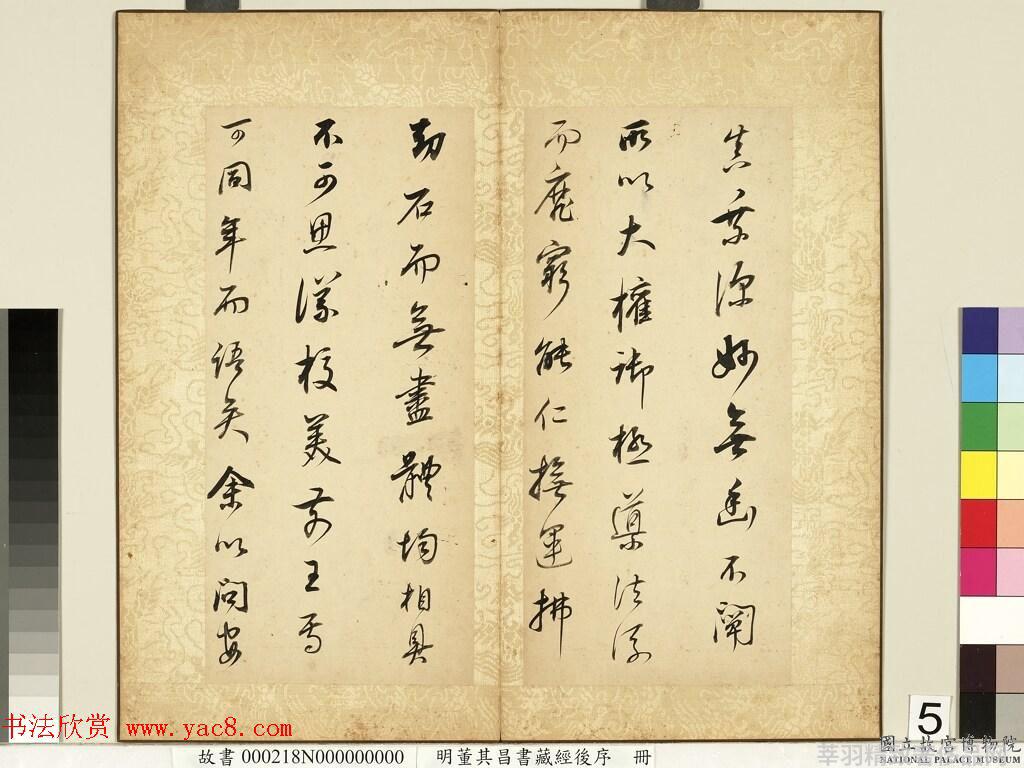 真乘深妙無幽不闡
所以大權御極導法流
而靡窮能仁撫運拂
劫石而無盡體均相具
不可思議校美前王焉
可同年而語矣余以問安
5
书法欣赏 www.yac8.com
故書 000218N000000000 明董其昌書藏經後序 冊
國立故宮博物院
NATIONAL PALACE MUSEUM